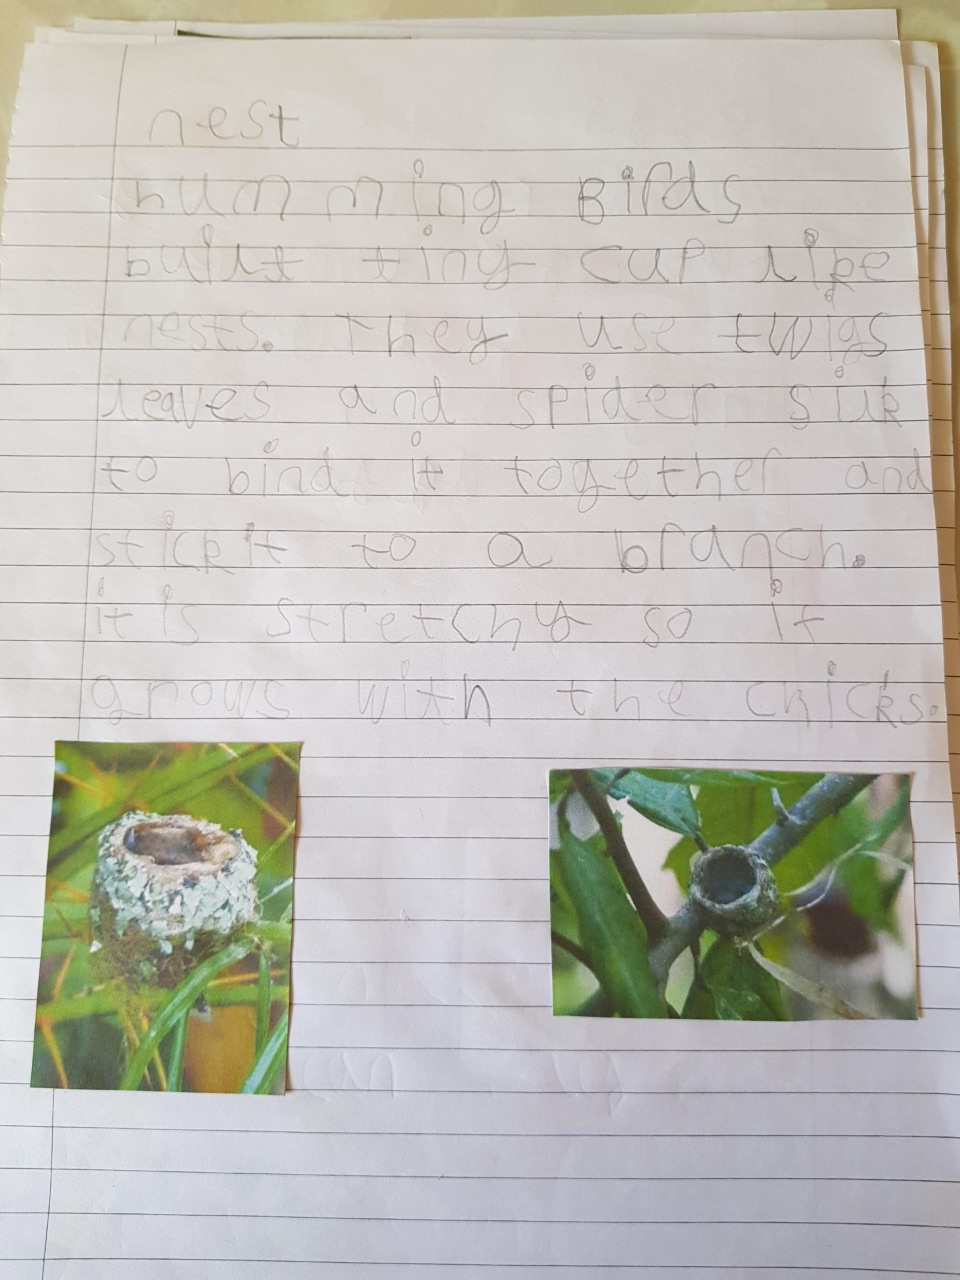 nest
humming Birds
built tiny cup like
nests. They use twigs
leaves and spider silk
to bind it together and
stick it to a branch.
it is stretchy so it
grows with the chicks.